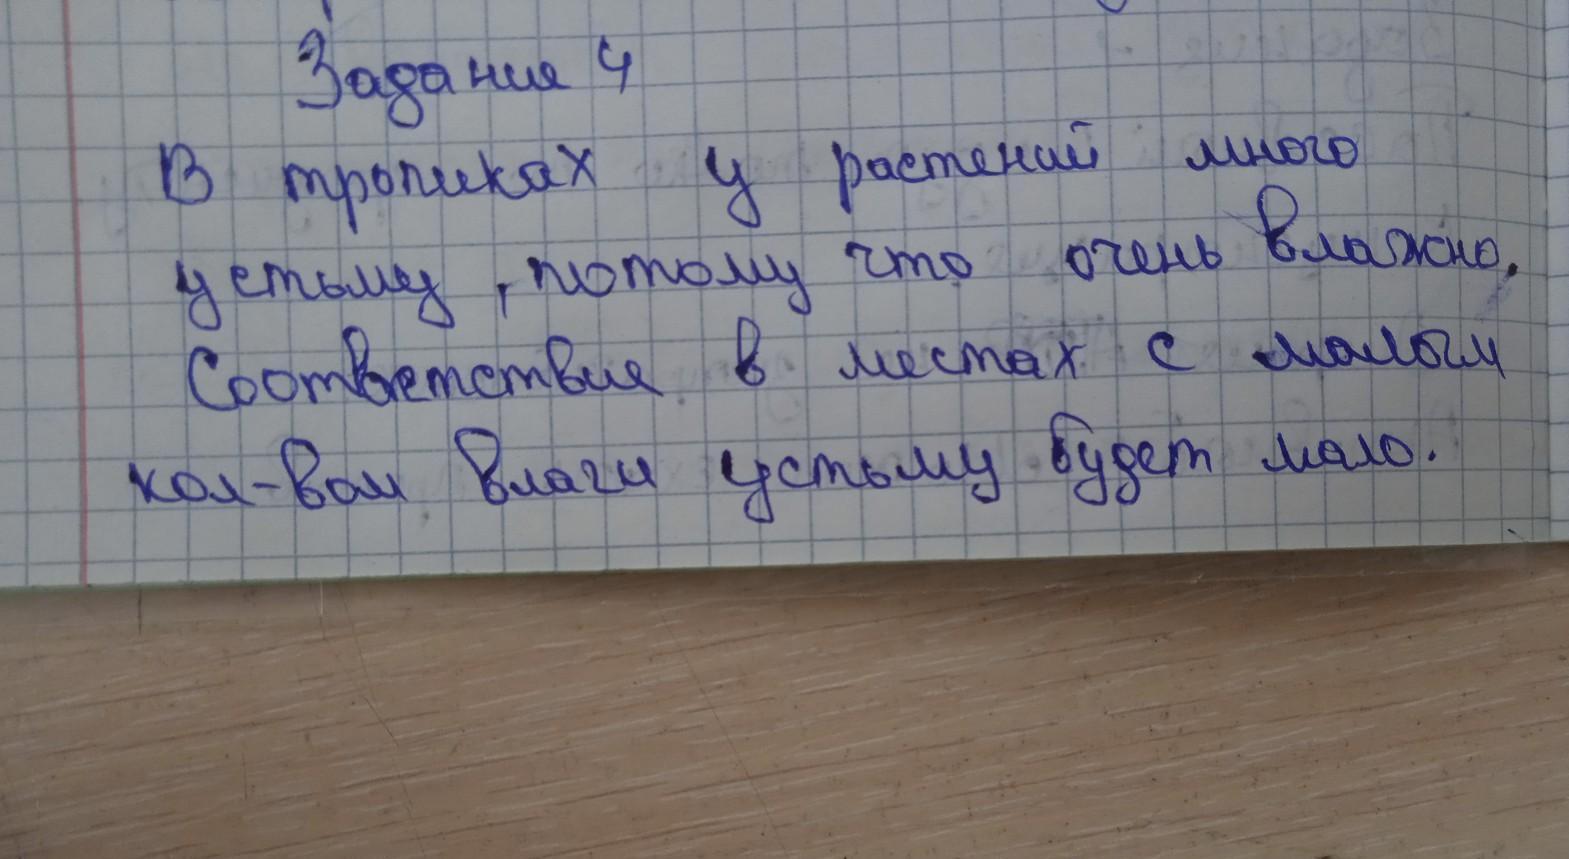 Задание 4
В тропиках у растений много
устьиц, потому что очень влажно.
Соответствие в местах с малым
кол-вом влаги устьиц будет мало.